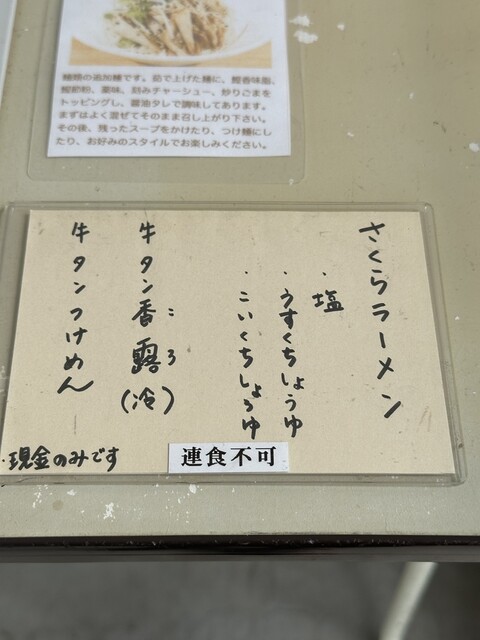 麺類の追加麺です。茹で上げた麺に、鰹香味脂、
鰹節粉、薬味、刻みチャーシュー、炒りごまを
トッピングし、醤油タレで調味してあります。
まずはよく混ぜてそのまま召し上がり下さい。
その後、残ったスープをかけたり、つけ麺にし
たり、お好みのスタイルでお楽しみください。
さくらラーメン
・塩
・うすくちしょうゆ
・こいくちしょうゆ
牛タン香露(冷)
ころ
牛タンつけめん
・現金のみです
連食不可